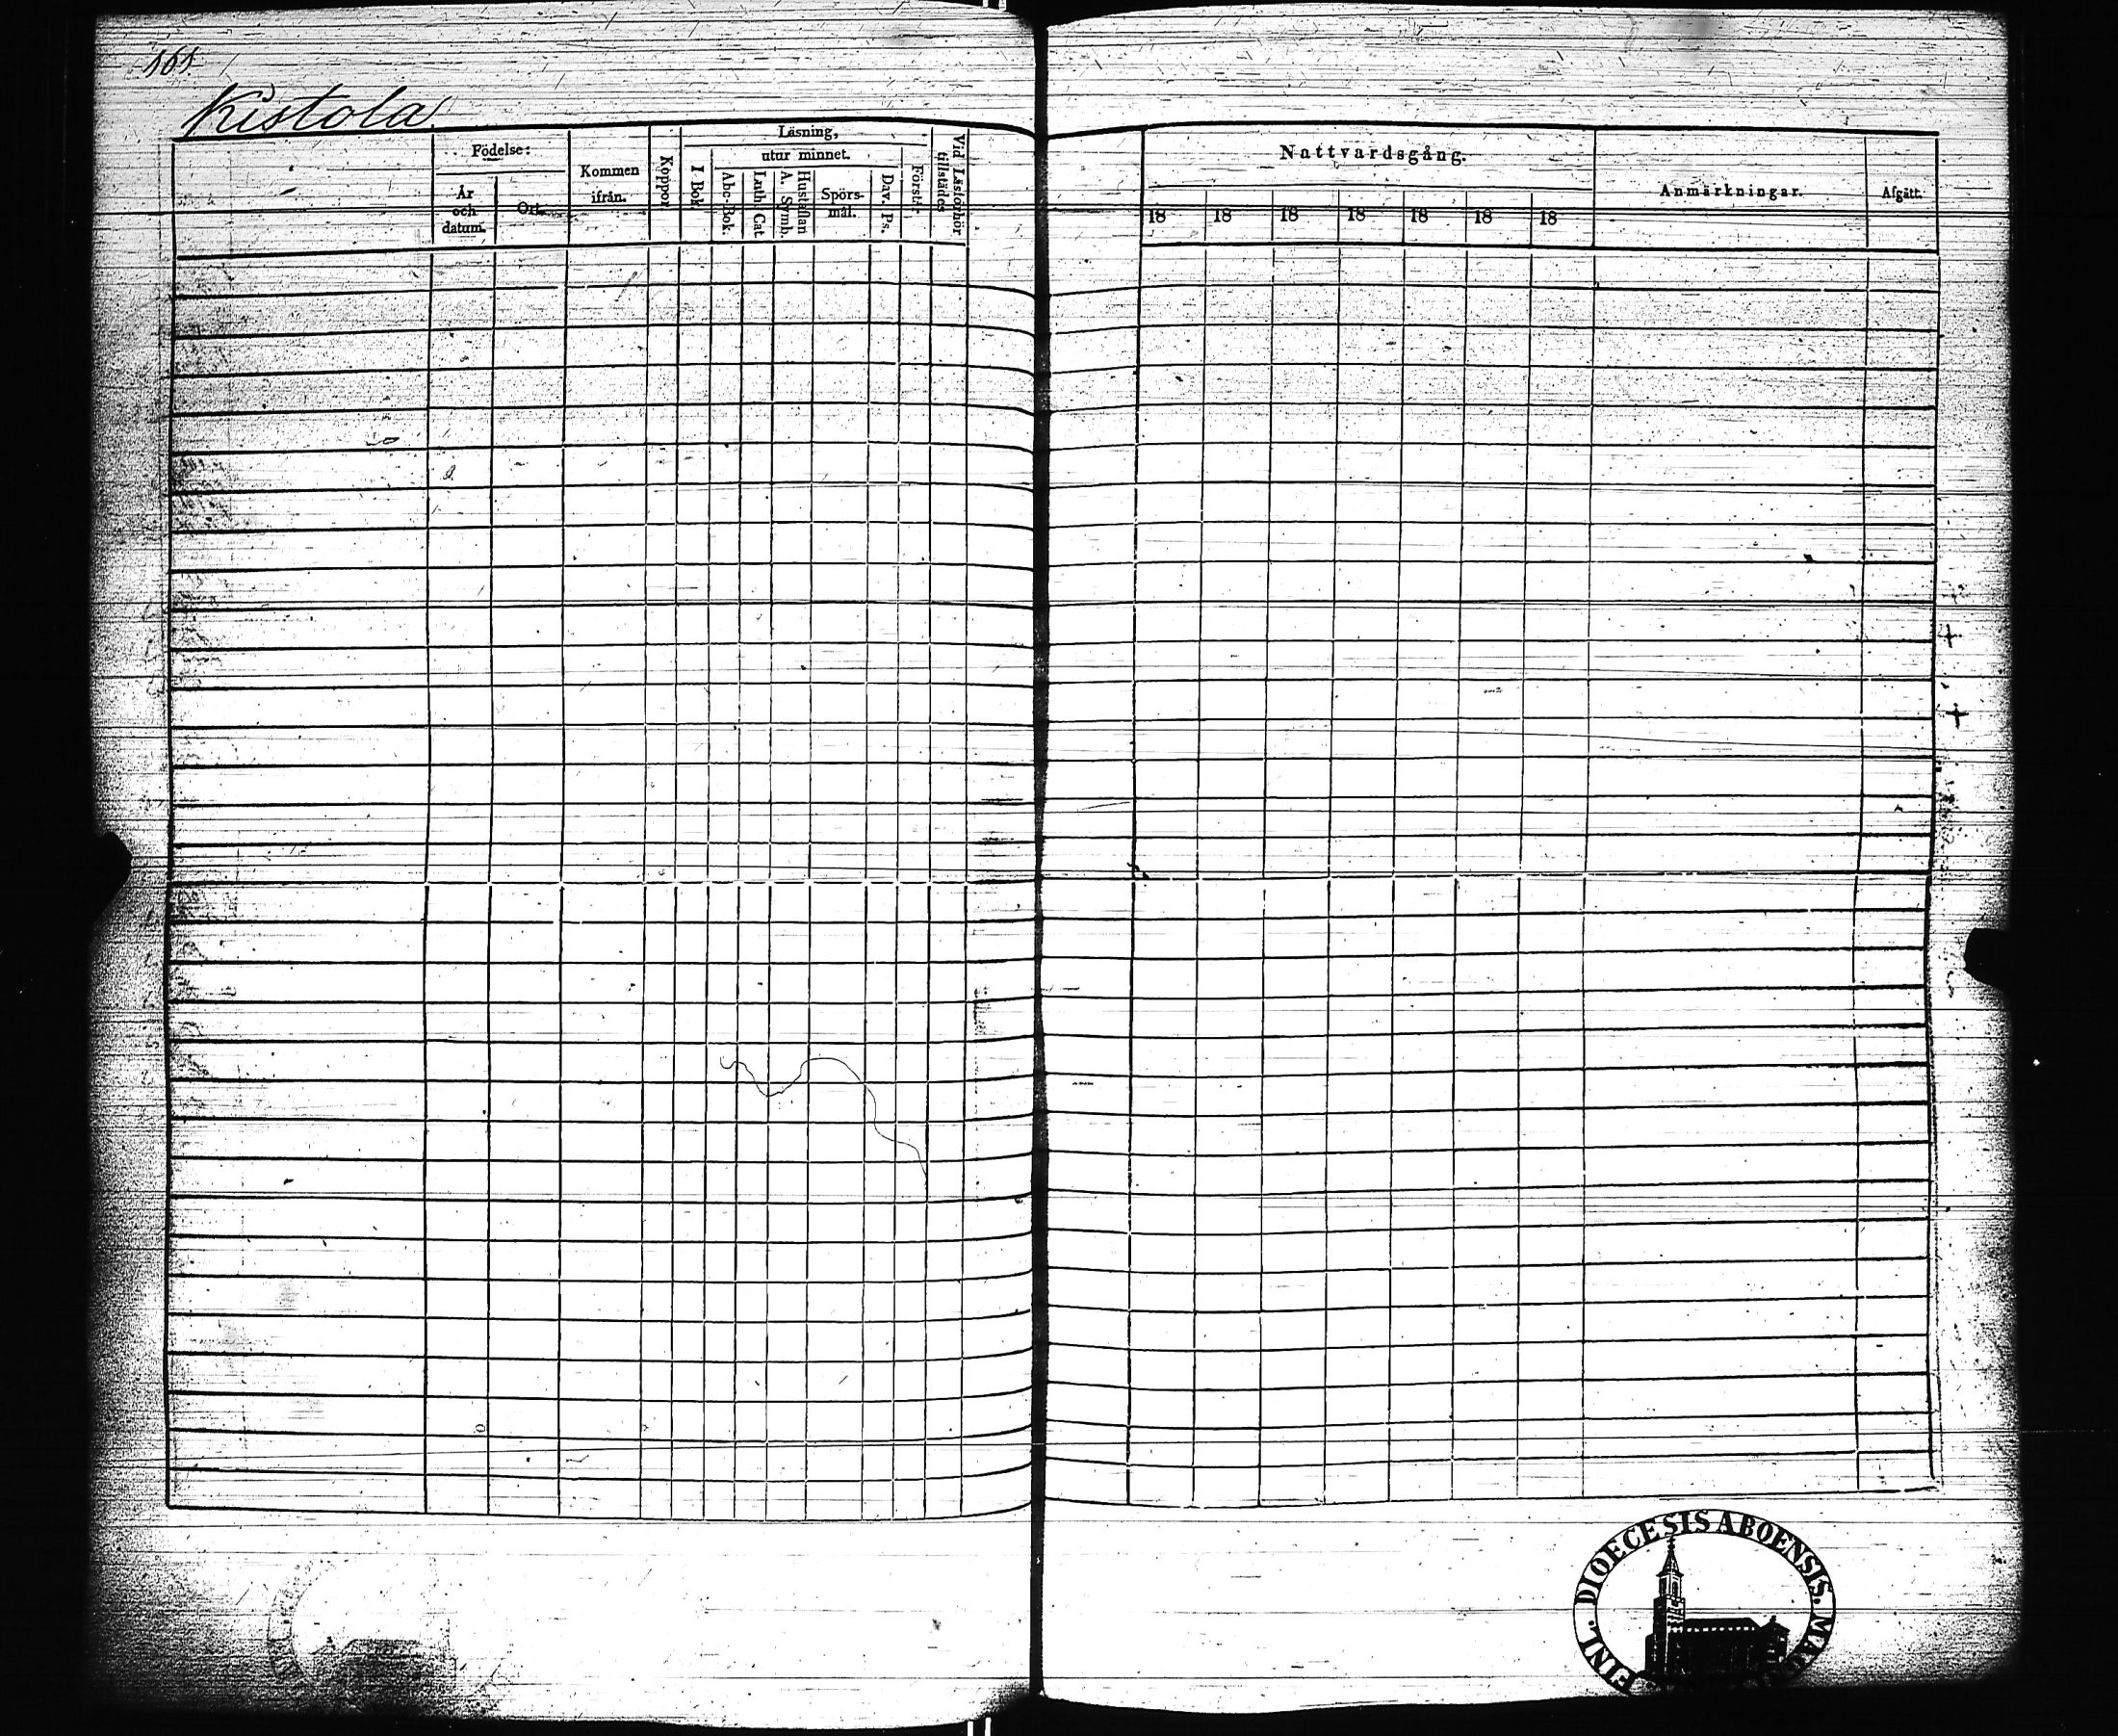 161.
Kistola
Födelse:
År och datum.
Ort.
Kommen ifrån.
Koppor.
Läsning,
utur minnet.
I Bok.
Abc-Bok.
Luth. Cat.
A. Symb. Hustaflan
Spörs-mål.
Dav. Ps.
Förstår
Vid Läsförhör tillstädes
Nattvardsgång.
18 18 18 18 18 18 18
Anmärkningar.
Afgått.
FINL. DIOECESIS ABOENSIS.